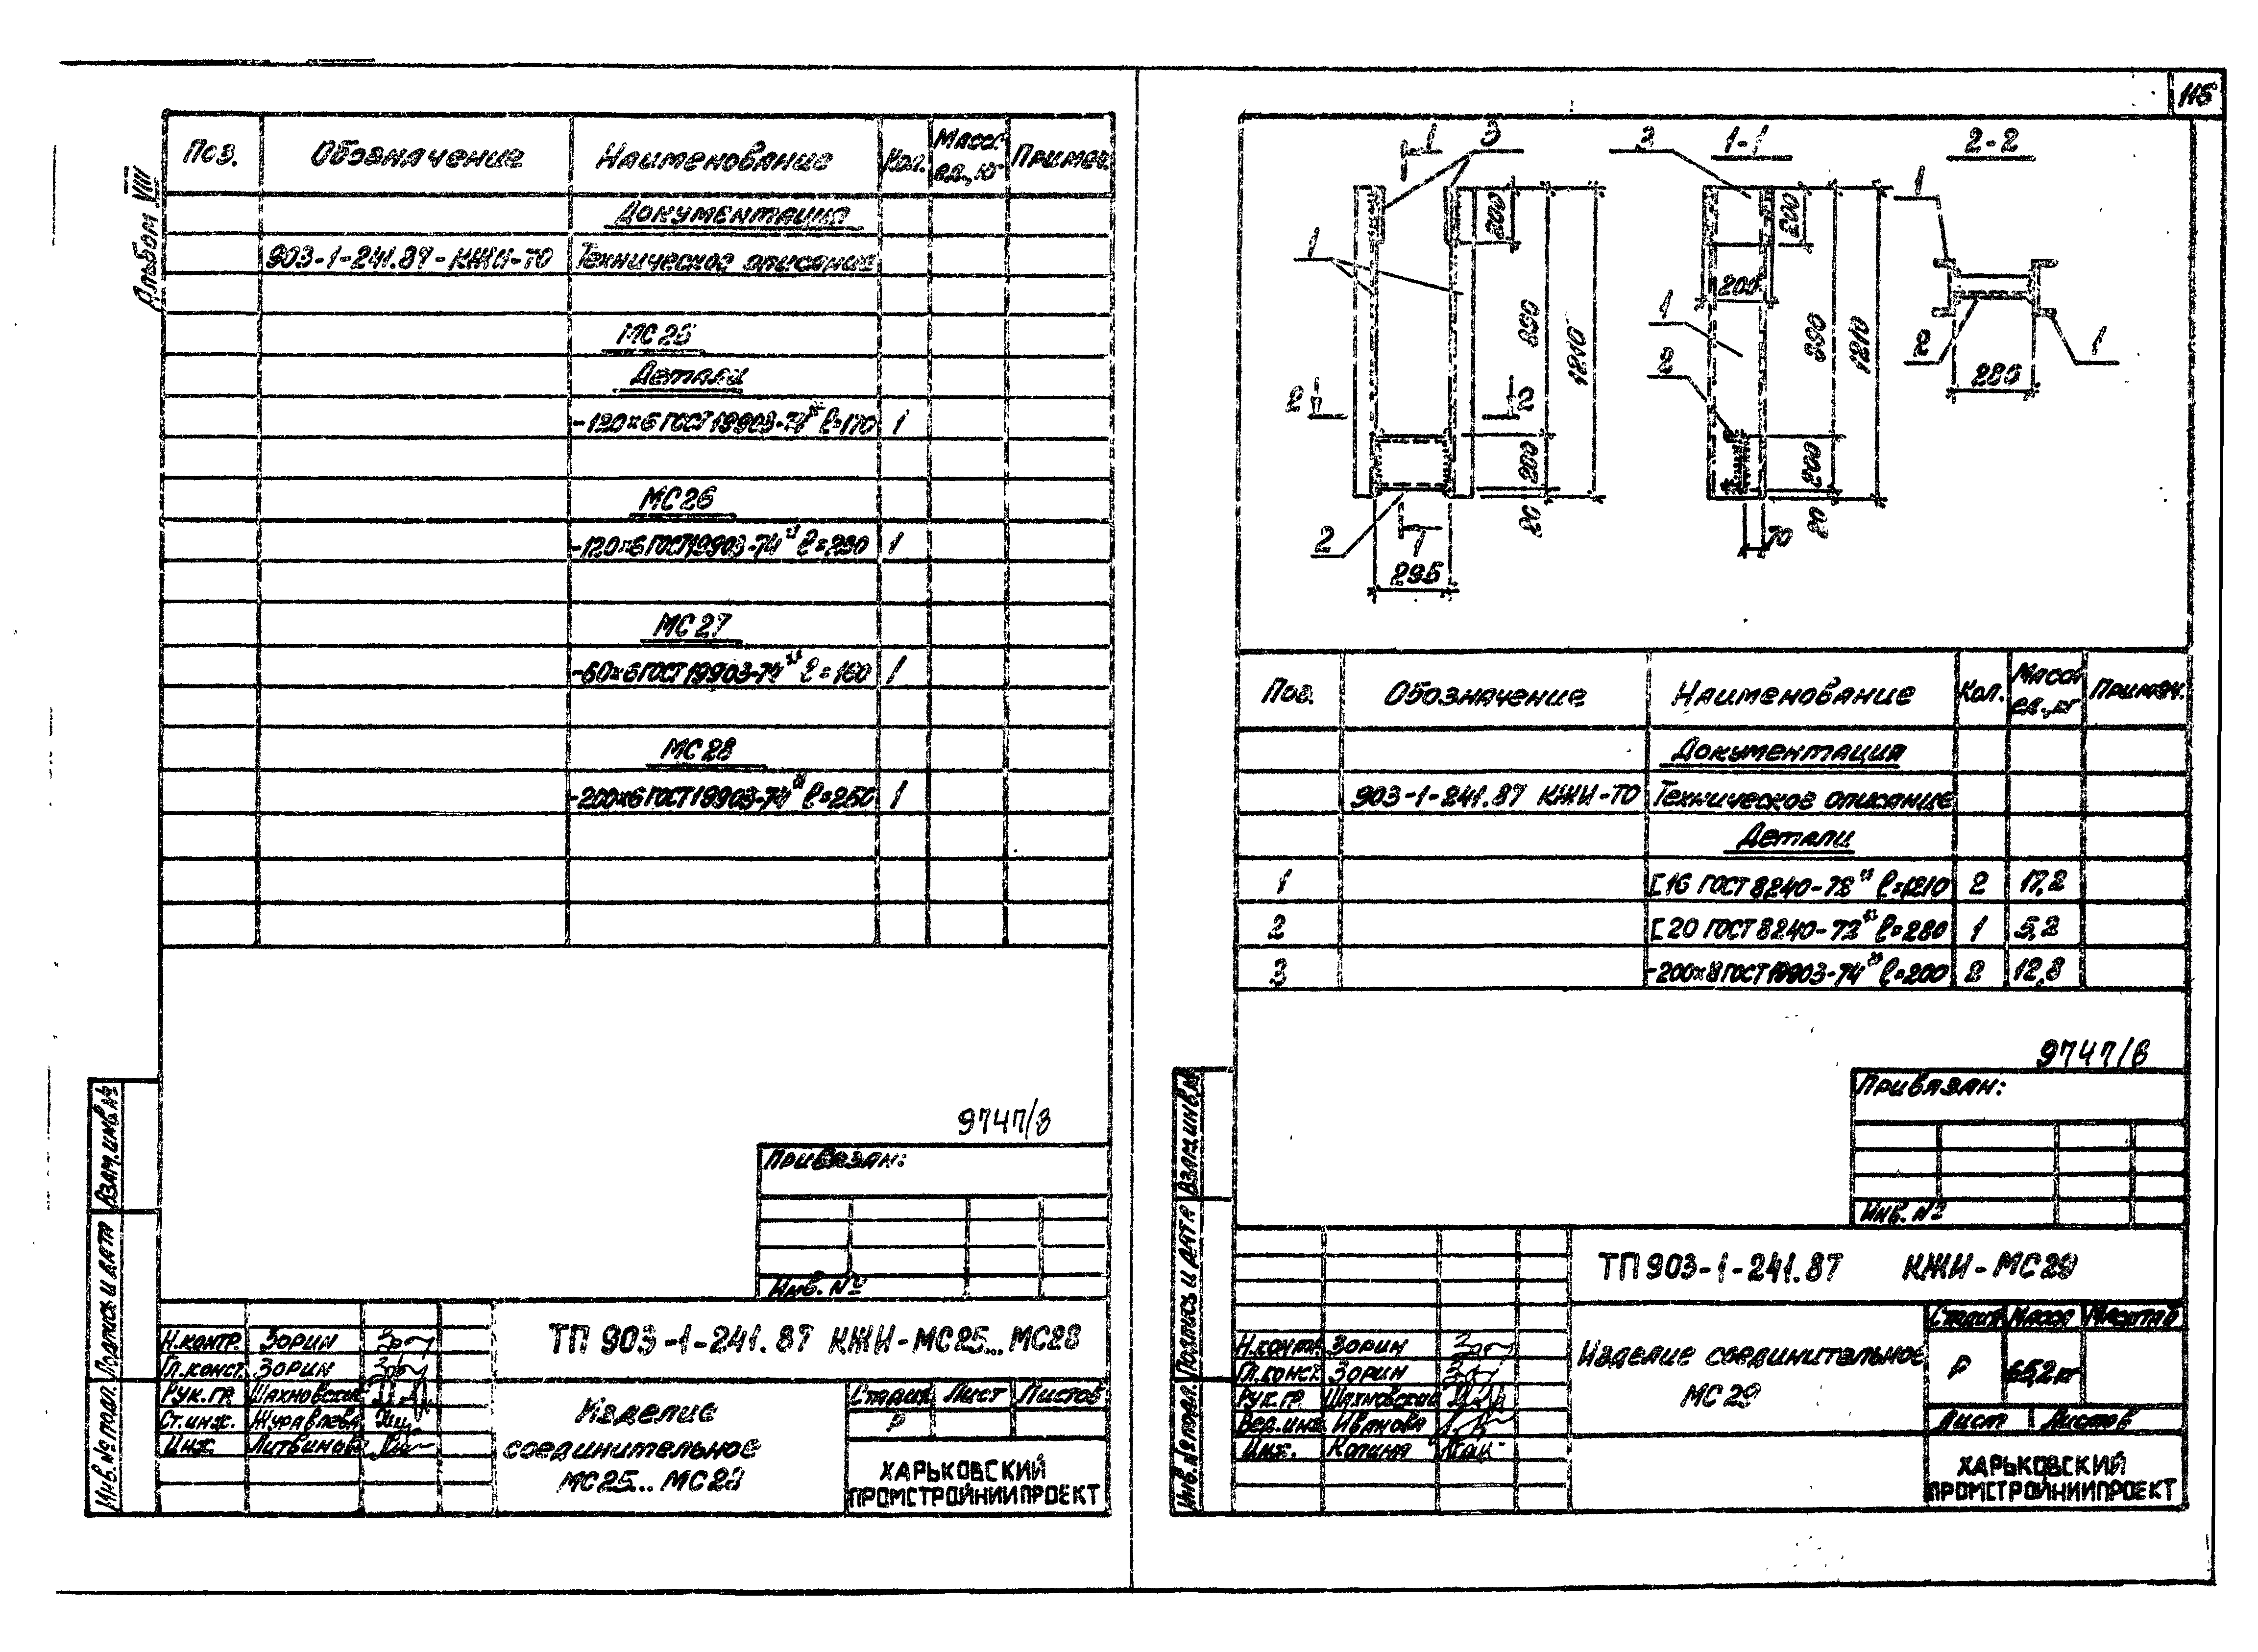 Альбом VIII
Поз. Обозначение Наименование Кол. Масса ед., кг Примеч.
Документация
903-1-241.87-КЖИ-ТО Техническое описание
МС25
Детали
-120×6 ГОСТ 19903-74* ℓ=170 1
МС26
-120×6 ГОСТ 19903-74* ℓ=290 1
МС27
-60×6 ГОСТ 19903-74* ℓ=160 1
МС28
-200×6 ГОСТ 19903-74* ℓ=250 1
9747/8
Привязан:
Инв. №
ТП 903-1-241.87 КЖИ-МС25...МС28
Н.контр. Зорин
Гл.конст. Зорин
Рук.гр. Шахновский
Ст.инж. Журавлева
Инж. Литвинова
Изделие
соединительное
МС25...МС28
Стадия Лист Листов
Р
ХАРЬКОВСКИЙ
ПРОМСТРОЙНИИПРОЕКТ
Взам.инв.№
Подпись и дата
Инв.№ подл.
115
1 3 3 1-1 2-2
1
200 200
1
200
1
990 1210
990 1210
2 2
2
2 1
280
200 200
20 20
2 1
70
295
Поз. Обозначение Наименование Кол. Масса ед., кг Примеч.
Документация
903-1-241.87 КЖИ-ТО Техническое описание
Детали
1 [16 ГОСТ 8240-72* ℓ=1210 2 17,2
2 [20 ГОСТ 8240-72* ℓ=280 1 5,2
3 -200×8 ГОСТ 19903-74* ℓ=200 2 12,8
9747/8
Привязан:
Инв. №
ТП 903-1-241.87 КЖИ-МС29
Н.контр. Зорин
Гл.конст. Зорин
Рук.гр. Шахновский
Вед.инж. Иванова
Инж. Копиня
Изделие соединительное
МС29
Стадия Масса Масштаб
Р 65,2 кг
Лист Листов
ХАРЬКОВСКИЙ
ПРОМСТРОЙНИИПРОЕКТ
Взам.инв.№
Подпись и дата
Инв.№ подл.